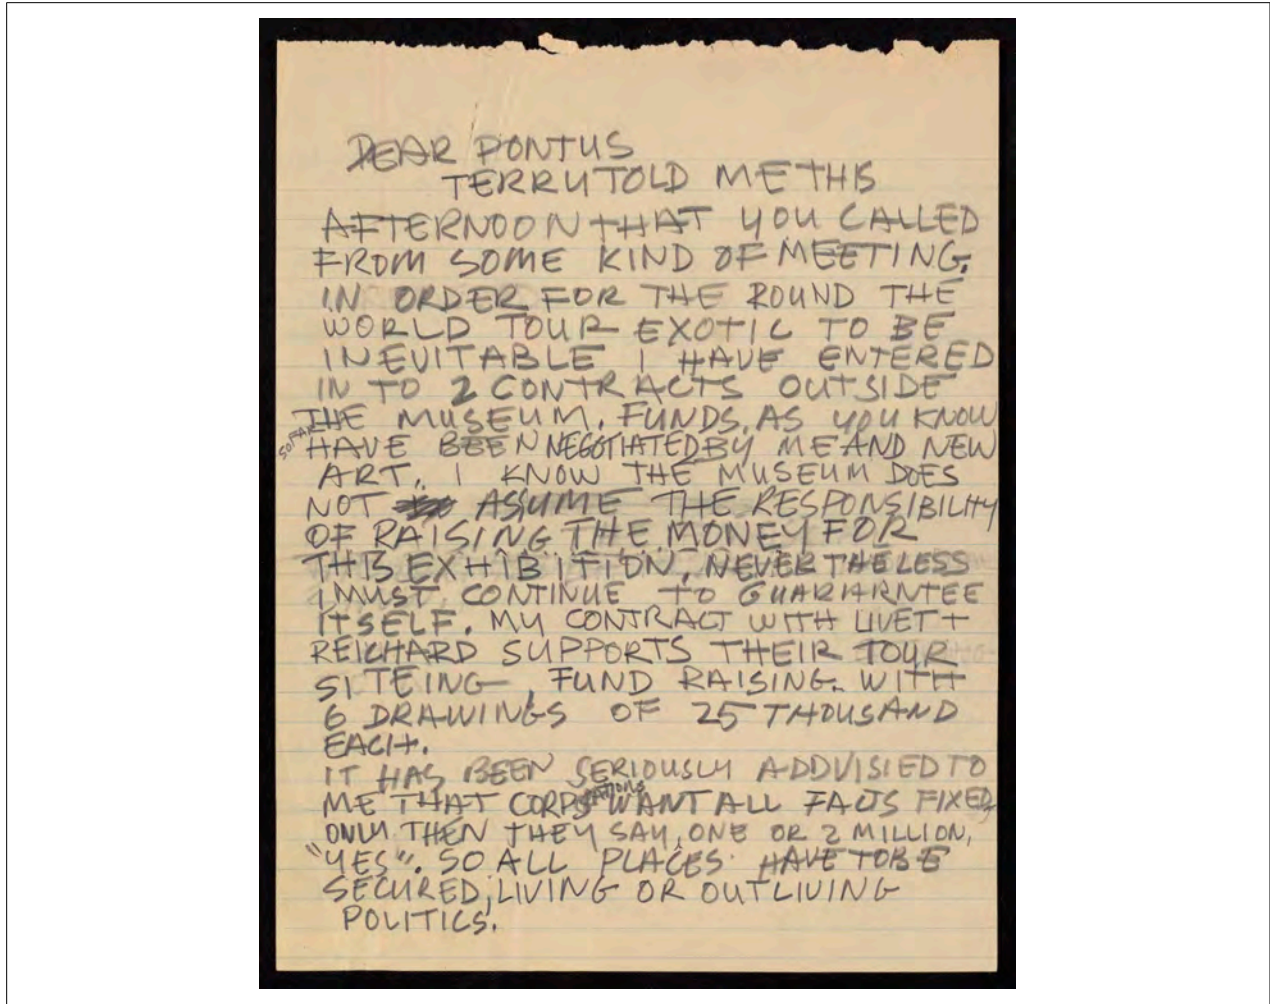 DEAR PONTUS
TERRY TOLD ME THIS
AFTERNOON THAT YOU CALLED
FROM SOME KIND OF MEETING.
IN ORDER FOR THE ROUND THE
WORLD TOUR EXOTIC TO BE
INEVITABLE I HAVE ENTERED
IN TO 2 CONTRACTS OUTSIDE
THE MUSEUM. FUNDS, AS YOU KNOW
SO FAR HAVE BEEN NEGOTIATED BY ME AND NEW
ART. I KNOW THE MUSEUM DOES
NOT ASSUME THE RESPONSIBILITY
OF RAISING THE MONEY FOR
THIS EXHIBITION, NEVER THE LESS
I MUST CONTINUE TO GUARIARNTEE
ITSELF. MY CONTRACT WITH LIVET +
REICHARD SUPPORTS THEIR TOUR
SITEING, FUND RAISING. WITH
6 DRAWINGS OF 25 THOUSAND
EACH.
IT HAS BEEN SERIOUSLY ADDVISIED TO
ME THAT CORPORATIONS WANT ALL FACTS FIXED,
ONLY THEN THEY SAY, ONE OR 2 MILLION,
"YES". SO ALL PLACES HAVE TO BE
SECURED, LIVING OR OUTLIVING
POLITICS.